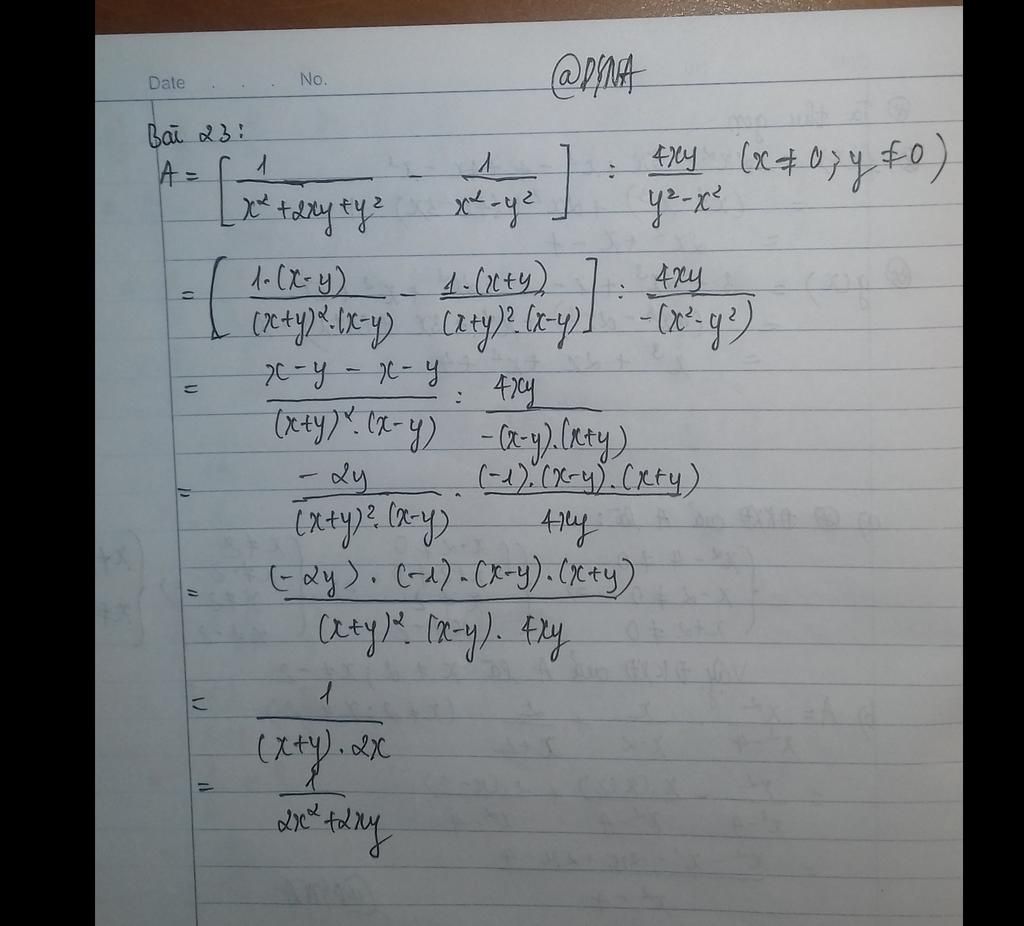 Date . . . No.
@DYNA
Bài 23:
A = [ 1/(x² + 2xy + y²) - 1/(x² - y²) ] : 4xy/(y² - x²) (x ≠ 0; y ≠ 0)
= [ 1.(x-y)/((x+y)².(x-y)) - 1.(x+y)/((x+y)².(x-y)) ] : 4xy/(-(x² - y²))
= (x - y - x - y)/((x+y)².(x-y)) : 4xy/(-(x-y).(x+y))
= (-2y)/((x+y)².(x-y)) . ((-1).(x-y).(x+y))/(4xy)
= ((-2y).(-1).(x-y).(x+y))/((x+y)².(x-y).4xy)
= 1/((x+y).2x)
= 1/(2x² + 2xy)